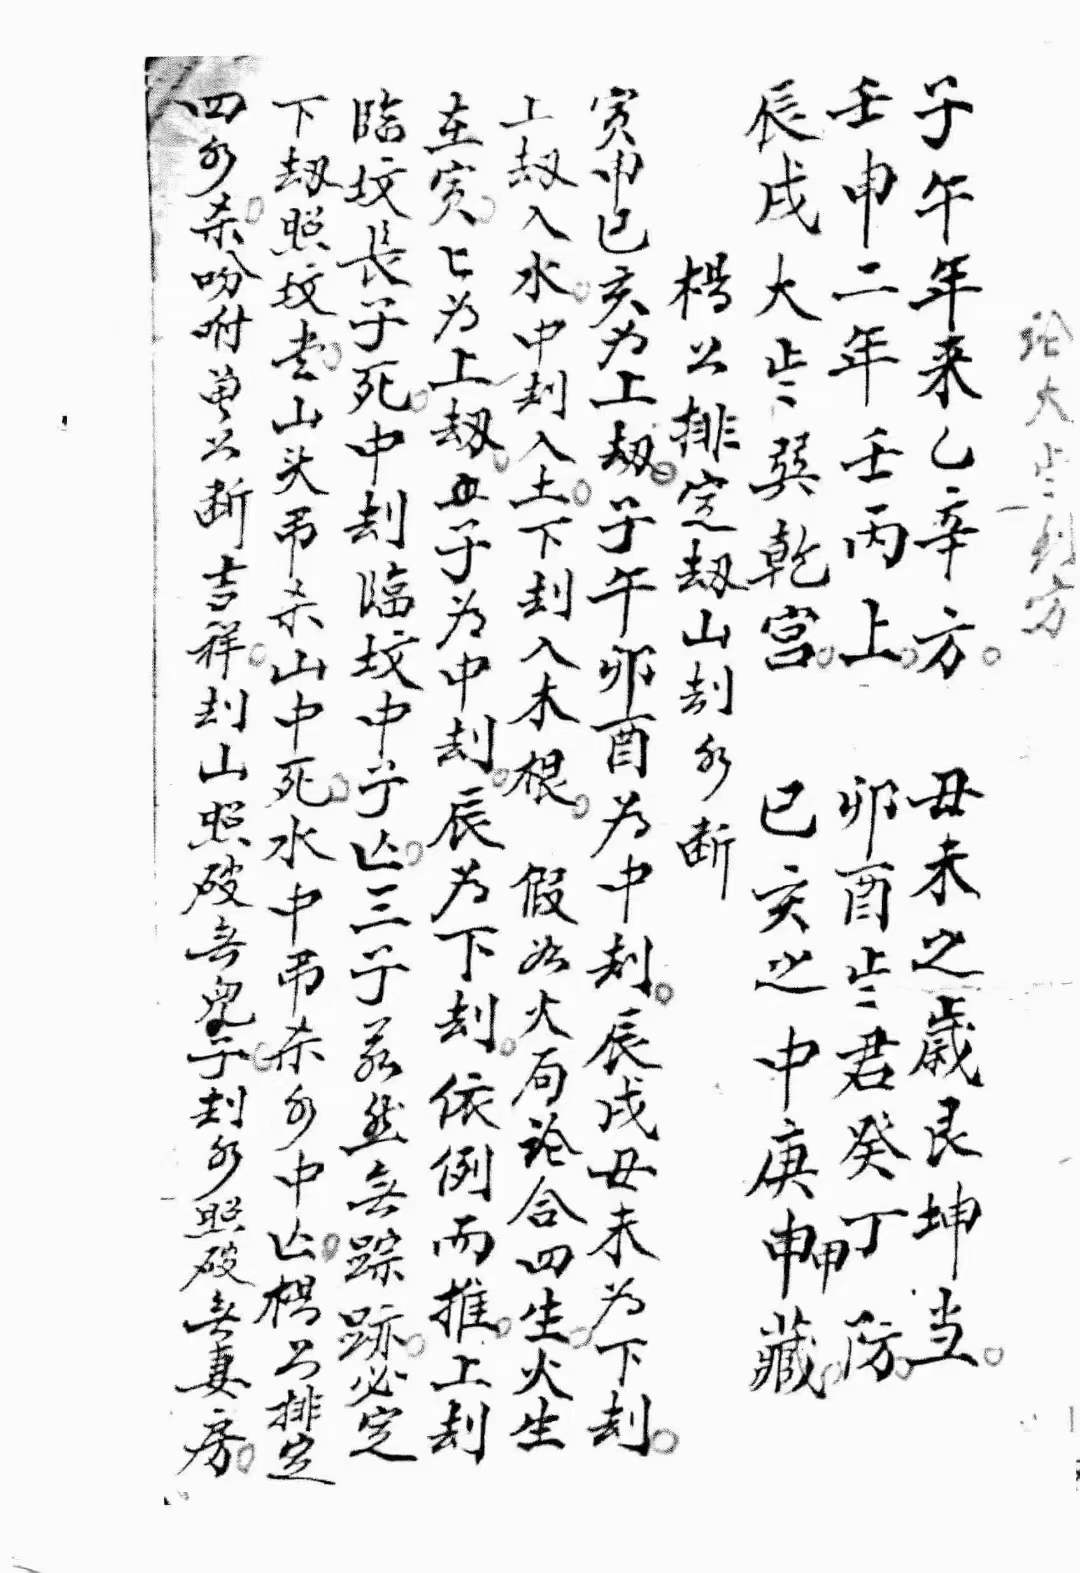 论大歨刦方
子午年来乙辛方。丑未之歲艮坤当。
壬申二年壬丙上。卯酉歨君癸丁防。
辰戌大歨巽乾宫。已亥之中庚甲藏。
楊公排定刼山刦水断
寅申巳亥为上刼。子午卯酉为中刦。辰戌丑未为下刦。
上刼入水。中刦入土。下刦入木根。假如火局论合四生。火生
在寅。匕为上刼。子为中刦。辰为下刦。依例而推。上刦
临坟長子死。中刦临坟中子亡。三子茲然無踪跡。必定
下刼照坟堂。山头吊杀山中死。水中吊杀水中亡。楊公排定
四水杀。吩咐曾公断吉祥。刦山照破無兒子。刦水照破無妻房。